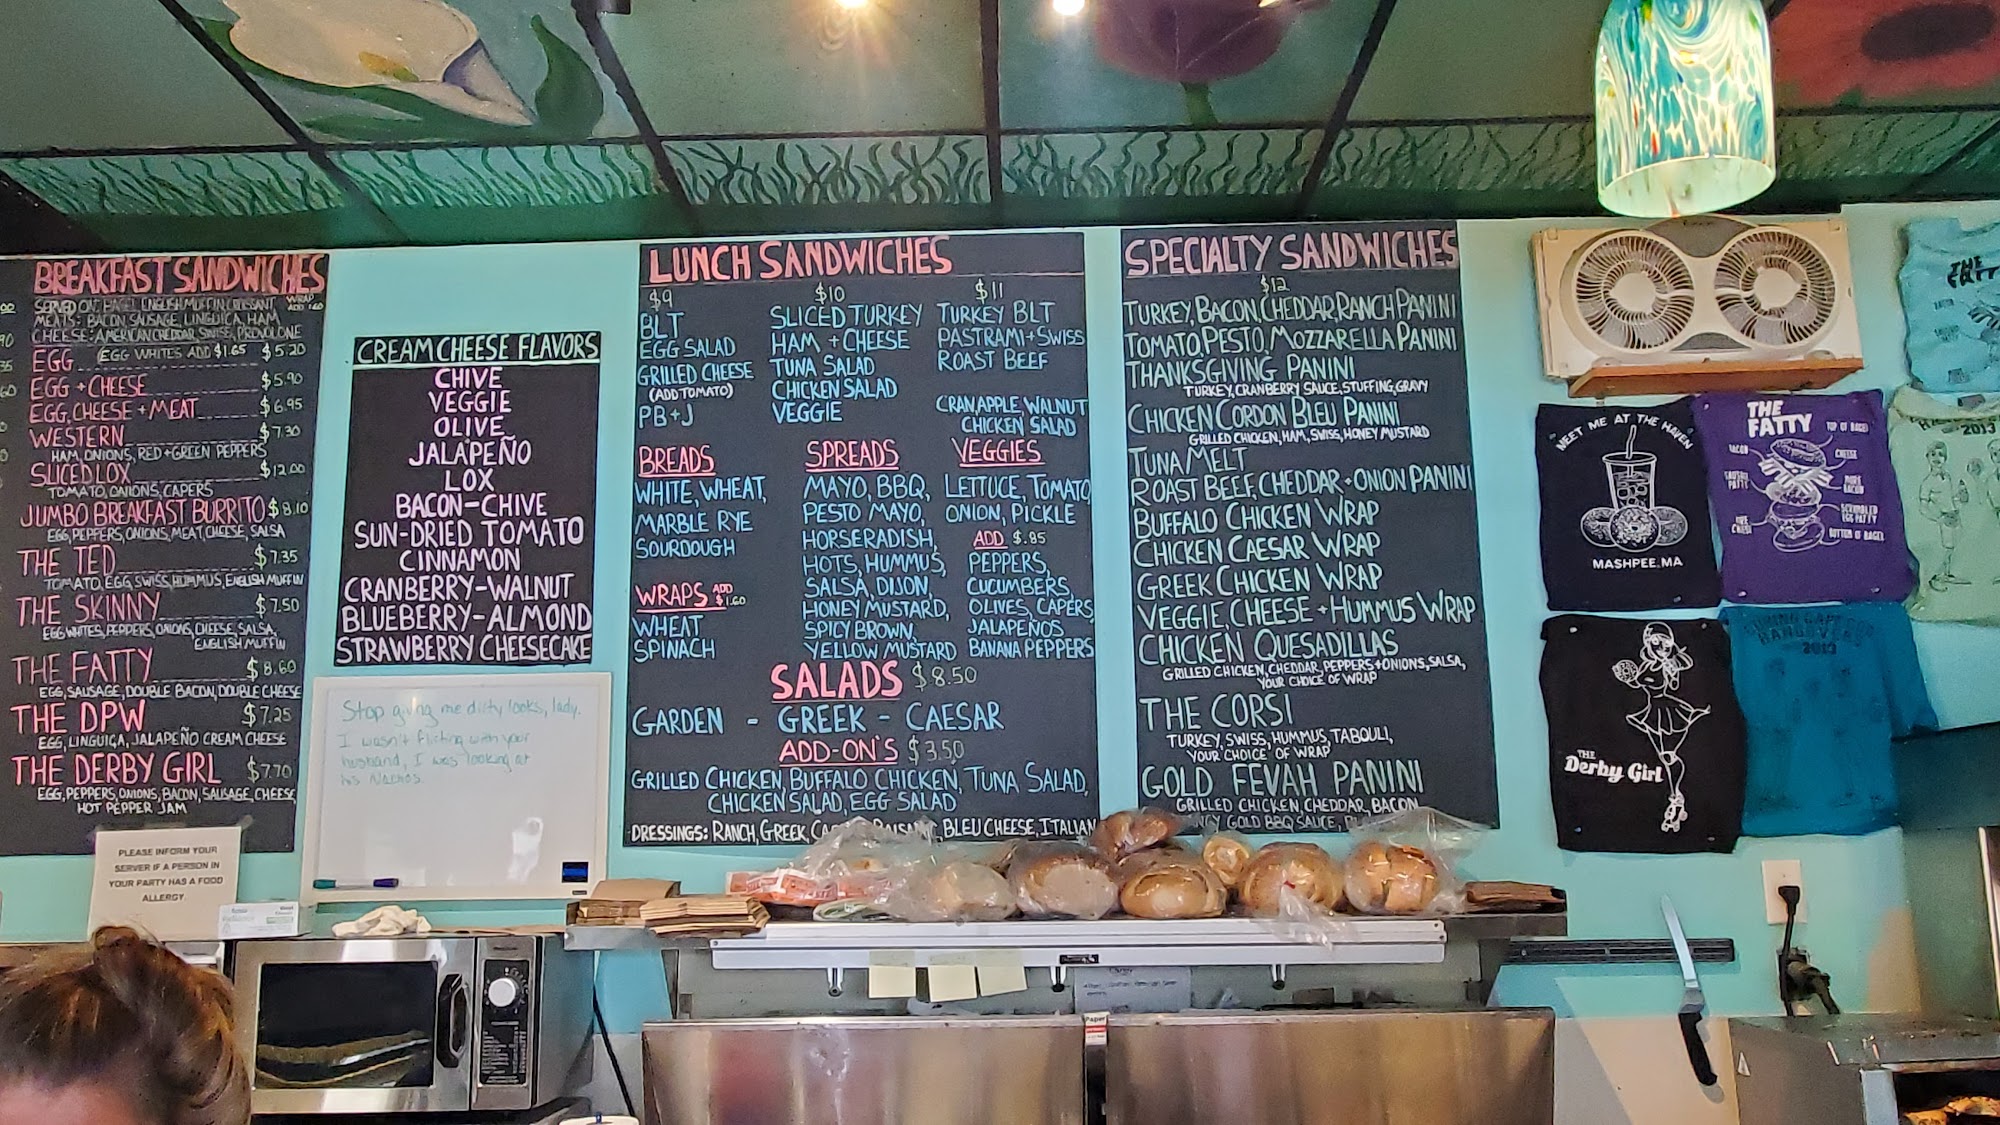 BREAKFAST SANDWICHES
SERVED ON: BAGEL, ENGLISH MUFFIN, CROISSANT WRAP ADD 1.60
MEATS: BACON, SAUSAGE, LINGUICA, HAM
CHEESE: AMERICAN, CHEDDAR, SWISS, PROVOLONE
EGG (EGG WHITES ADD $1.65 $5.20
EGG + CHEESE $5.90
EGG, CHEESE + MEAT $6.95
WESTERN $7.30
HAM, ONIONS, RED + GREEN PEPPERS
SLICED LOX $12.00
TOMATO, ONIONS, CAPERS
JUMBO BREAKFAST BURRITO $8.10
EGG, PEPPERS, ONIONS, MEAT, CHEESE, SALSA
THE TED $7.35
TOMATO, EGG, SWISS, HUMMUS, ENGLISH MUFFIN
THE SKINNY $7.50
EGG WHITES, PEPPERS, ONIONS, CHEESE, SALSA,
ENGLISH MUFFIN
THE FATTY $8.60
EGG, SAUSAGE, DOUBLE BACON, DOUBLE CHEESE
THE DPW $7.25
EGG, LINGUIÇA, JALAPEÑO CREAM CHEESE
THE DERBY GIRL $7.70
EGG, PEPPERS, ONIONS, BACON, SAUSAGE, CHEESE,
HOT PEPPER JAM
PLEASE INFORM YOUR
SERVER IF A PERSON IN
YOUR PARTY HAS A FOOD
ALLERGY
CREAM CHEESE FLAVORS
CHIVE
VEGGIE
OLIVE
JALAPEÑO
LOX
BACON-CHIVE
SUN-DRIED TOMATO
CINNAMON
CRANBERRY-WALNUT
BLUEBERRY-ALMOND
STRAWBERRY CHEESECAKE
Stop giving me dirty looks, lady.
I wasn't flirting with your
husband, I was looking at
his Nachos.
LUNCH SANDWICHES
$9
BLT
EGG SALAD
GRILLED CHEESE
(ADD TOMATO)
PB+J
$10
SLICED TURKEY
HAM + CHEESE
TUNA SALAD
CHICKEN SALAD
VEGGIE
$11
TURKEY BLT
PASTRAMI + SWISS
ROAST BEEF
CRAN, APPLE, WALNUT
CHICKEN SALAD
BREADS
WHITE, WHEAT,
MARBLE RYE
SOURDOUGH
WRAPS ADD $1.60
WHEAT
SPINACH
SPREADS
MAYO, BBQ,
PESTO MAYO,
HORSERADISH,
HOTS, HUMMUS,
SALSA, DIJON,
HONEY MUSTARD,
SPICY BROWN,
YELLOW MUSTARD
VEGGIES
LETTUCE, TOMATO,
ONION, PICKLE
ADD $.85
PEPPERS,
CUCUMBERS,
OLIVES, CAPERS,
JALAPEÑOS
BANANA PEPPERS
SALADS $8.50
GARDEN - GREEK - CAESAR
ADD-ON'S $3.50
GRILLED CHICKEN, BUFFALO CHICKEN, TUNA SALAD,
CHICKEN SALAD, EGG SALAD
DRESSINGS: RANCH, GREEK, BLEU CHEESE, ITALIAN
SPECIALTY SANDWICHES
$12
TURKEY, BACON, CHEDDAR, RANCH PANINI
TOMATO, PESTO, MOZZARELLA PANINI
THANKSGIVING PANINI
TURKEY, CRANBERRY SAUCE, STUFFING, GRAVY
CHICKEN CORDON BLEU PANINI
GRILLED CHICKEN, HAM, SWISS, HONEY MUSTARD
TUNA MELT
ROAST BEEF, CHEDDAR + ONION PANINI
BUFFALO CHICKEN WRAP
CHICKEN CAESAR WRAP
GREEK CHICKEN WRAP
VEGGIE, CHEESE + HUMMUS WRAP
CHICKEN QUESADILLAS
GRILLED CHICKEN, CHEDDAR, PEPPERS + ONIONS, SALSA,
YOUR CHOICE OF WRAP
THE CORSI
TURKEY, SWISS, HUMMUS, TABOULI,
YOUR CHOICE OF WRAP
GOLD FEVAH PANINI
GRILLED CHICKEN, CHEDDAR, BACON
GOLD BBQ SAUCE,
MEET ME AT THE HAVEN
MASHPEE, MA
THE
FATTY
TOP O' BAGEL
BACON
CHEESE
SAUSAGE PATTY
MORE BACON
SCRAMBLED EGG PATTY
BOTTOM O' BAGEL
THE
Derby Girl
2013
2013